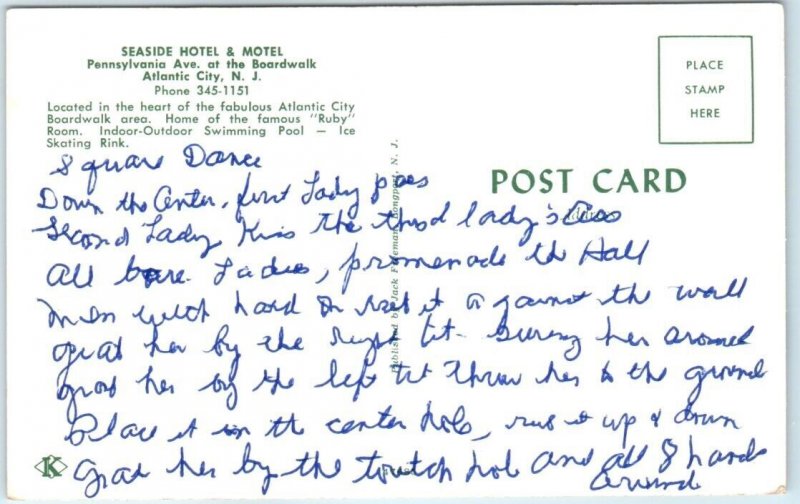 SEASIDE HOTEL & MOTEL
Pennsylvania Ave. at the Boardwalk
Atlantic City, N. J.
Phone 345-1151
Located in the heart of the fabulous Atlantic City
Boardwalk area. Home of the famous "Ruby"
Room. Indoor-Outdoor Swimming Pool — Ice
Skating Rink.
PLACE
STAMP
HERE
POST CARD
Published by Jack Freeman, Longport, N. J.
Square Dance
Down the Center, first Lady
Second Lady Kiss the third lady's
All Ladies, promenade the Hall
Men with hard on rest it against the wall
grab her by the right tit - swing her around
grab her by the left tit throw her to the ground
Place it in the center hole, run it up & down
Grab her by the hole and all 8 hands
around
K